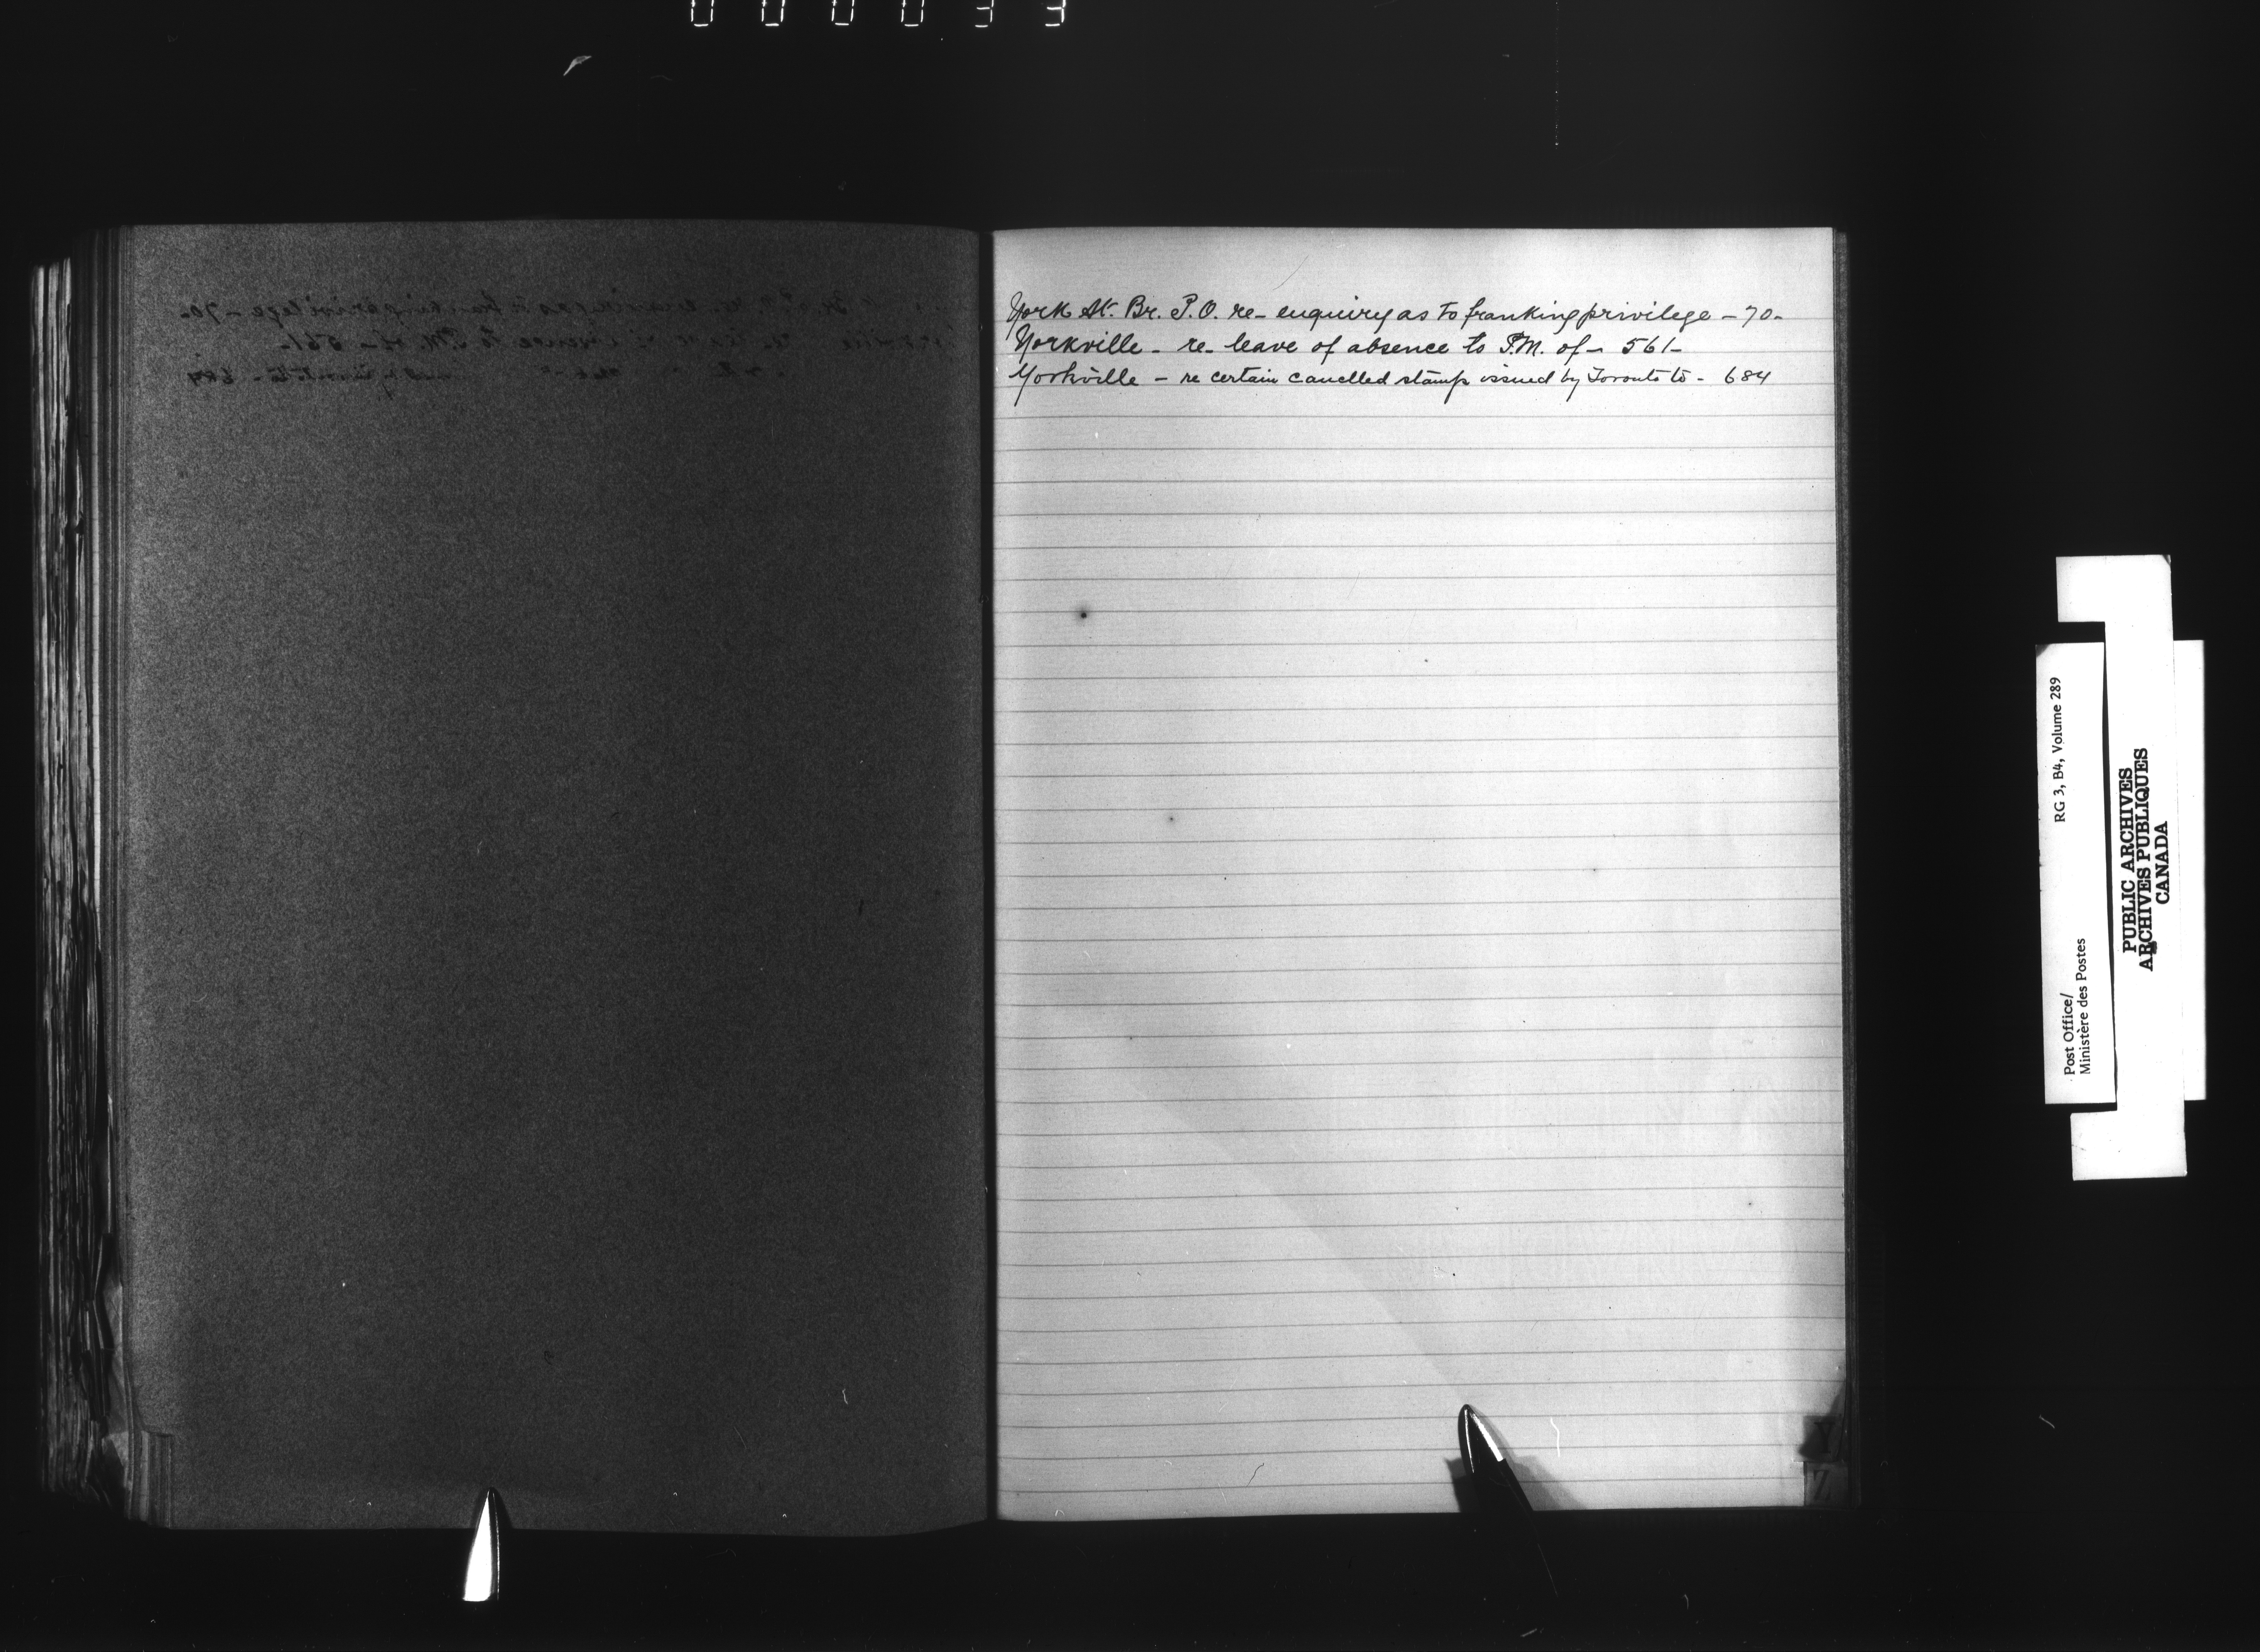 000033
York St. Br. P.O. re- enquiry as to franking privilege - 70-
Yorkville - re- leave of absence to P.M. of - 561-
Yorkville - re certain cancelled stamps issued by Toronto to - 684
Y
Z
Post Office/ RG 3, B4, Volume 289
Ministère des Postes
PUBLIC ARCHIVES
ARCHIVES PUBLIQUES
CANADA